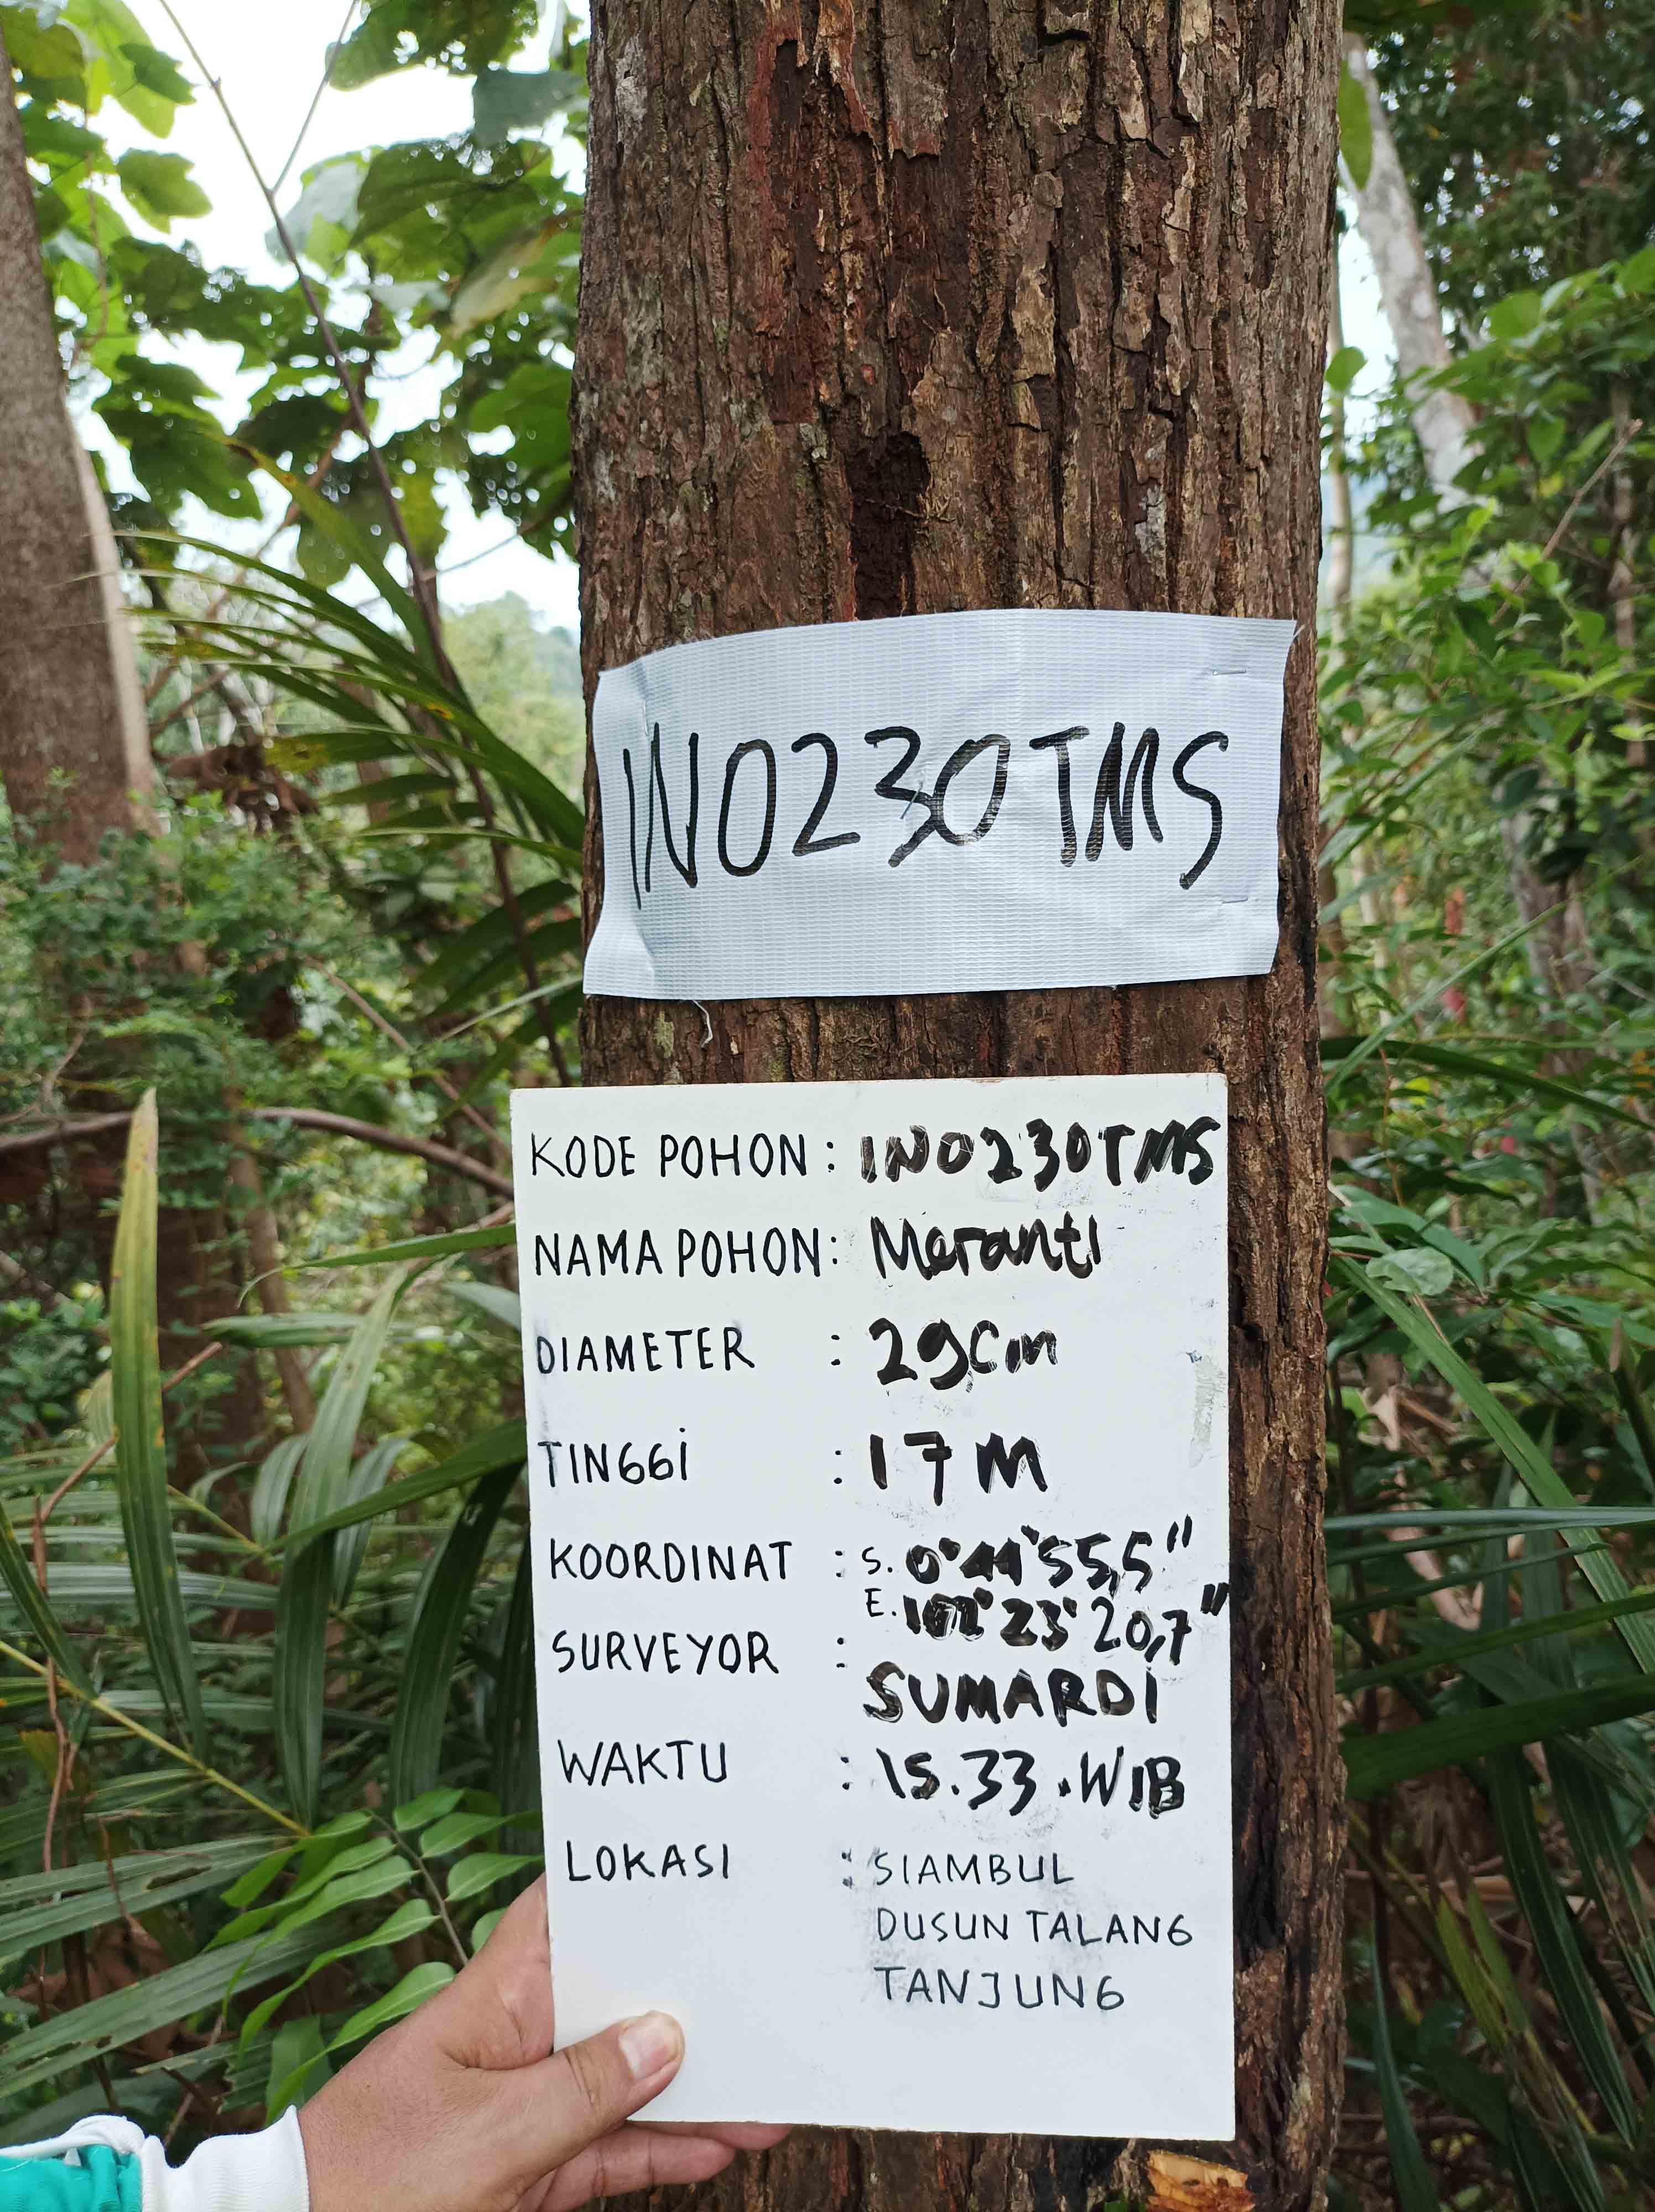 INO230TMS
KODE POHON : INO230TMS
NAMA POHON : Meranti
DIAMETER : 29cm
TINGGI : 17 M
KOORDINAT : S. 0°44'55,5"
E. 102°23'20,7"
SURVEYOR : SUMARDI
WAKTU : 15.33.WIB
LOKASI : SIAMBUL
DUSUN TALANG
TANJUNG